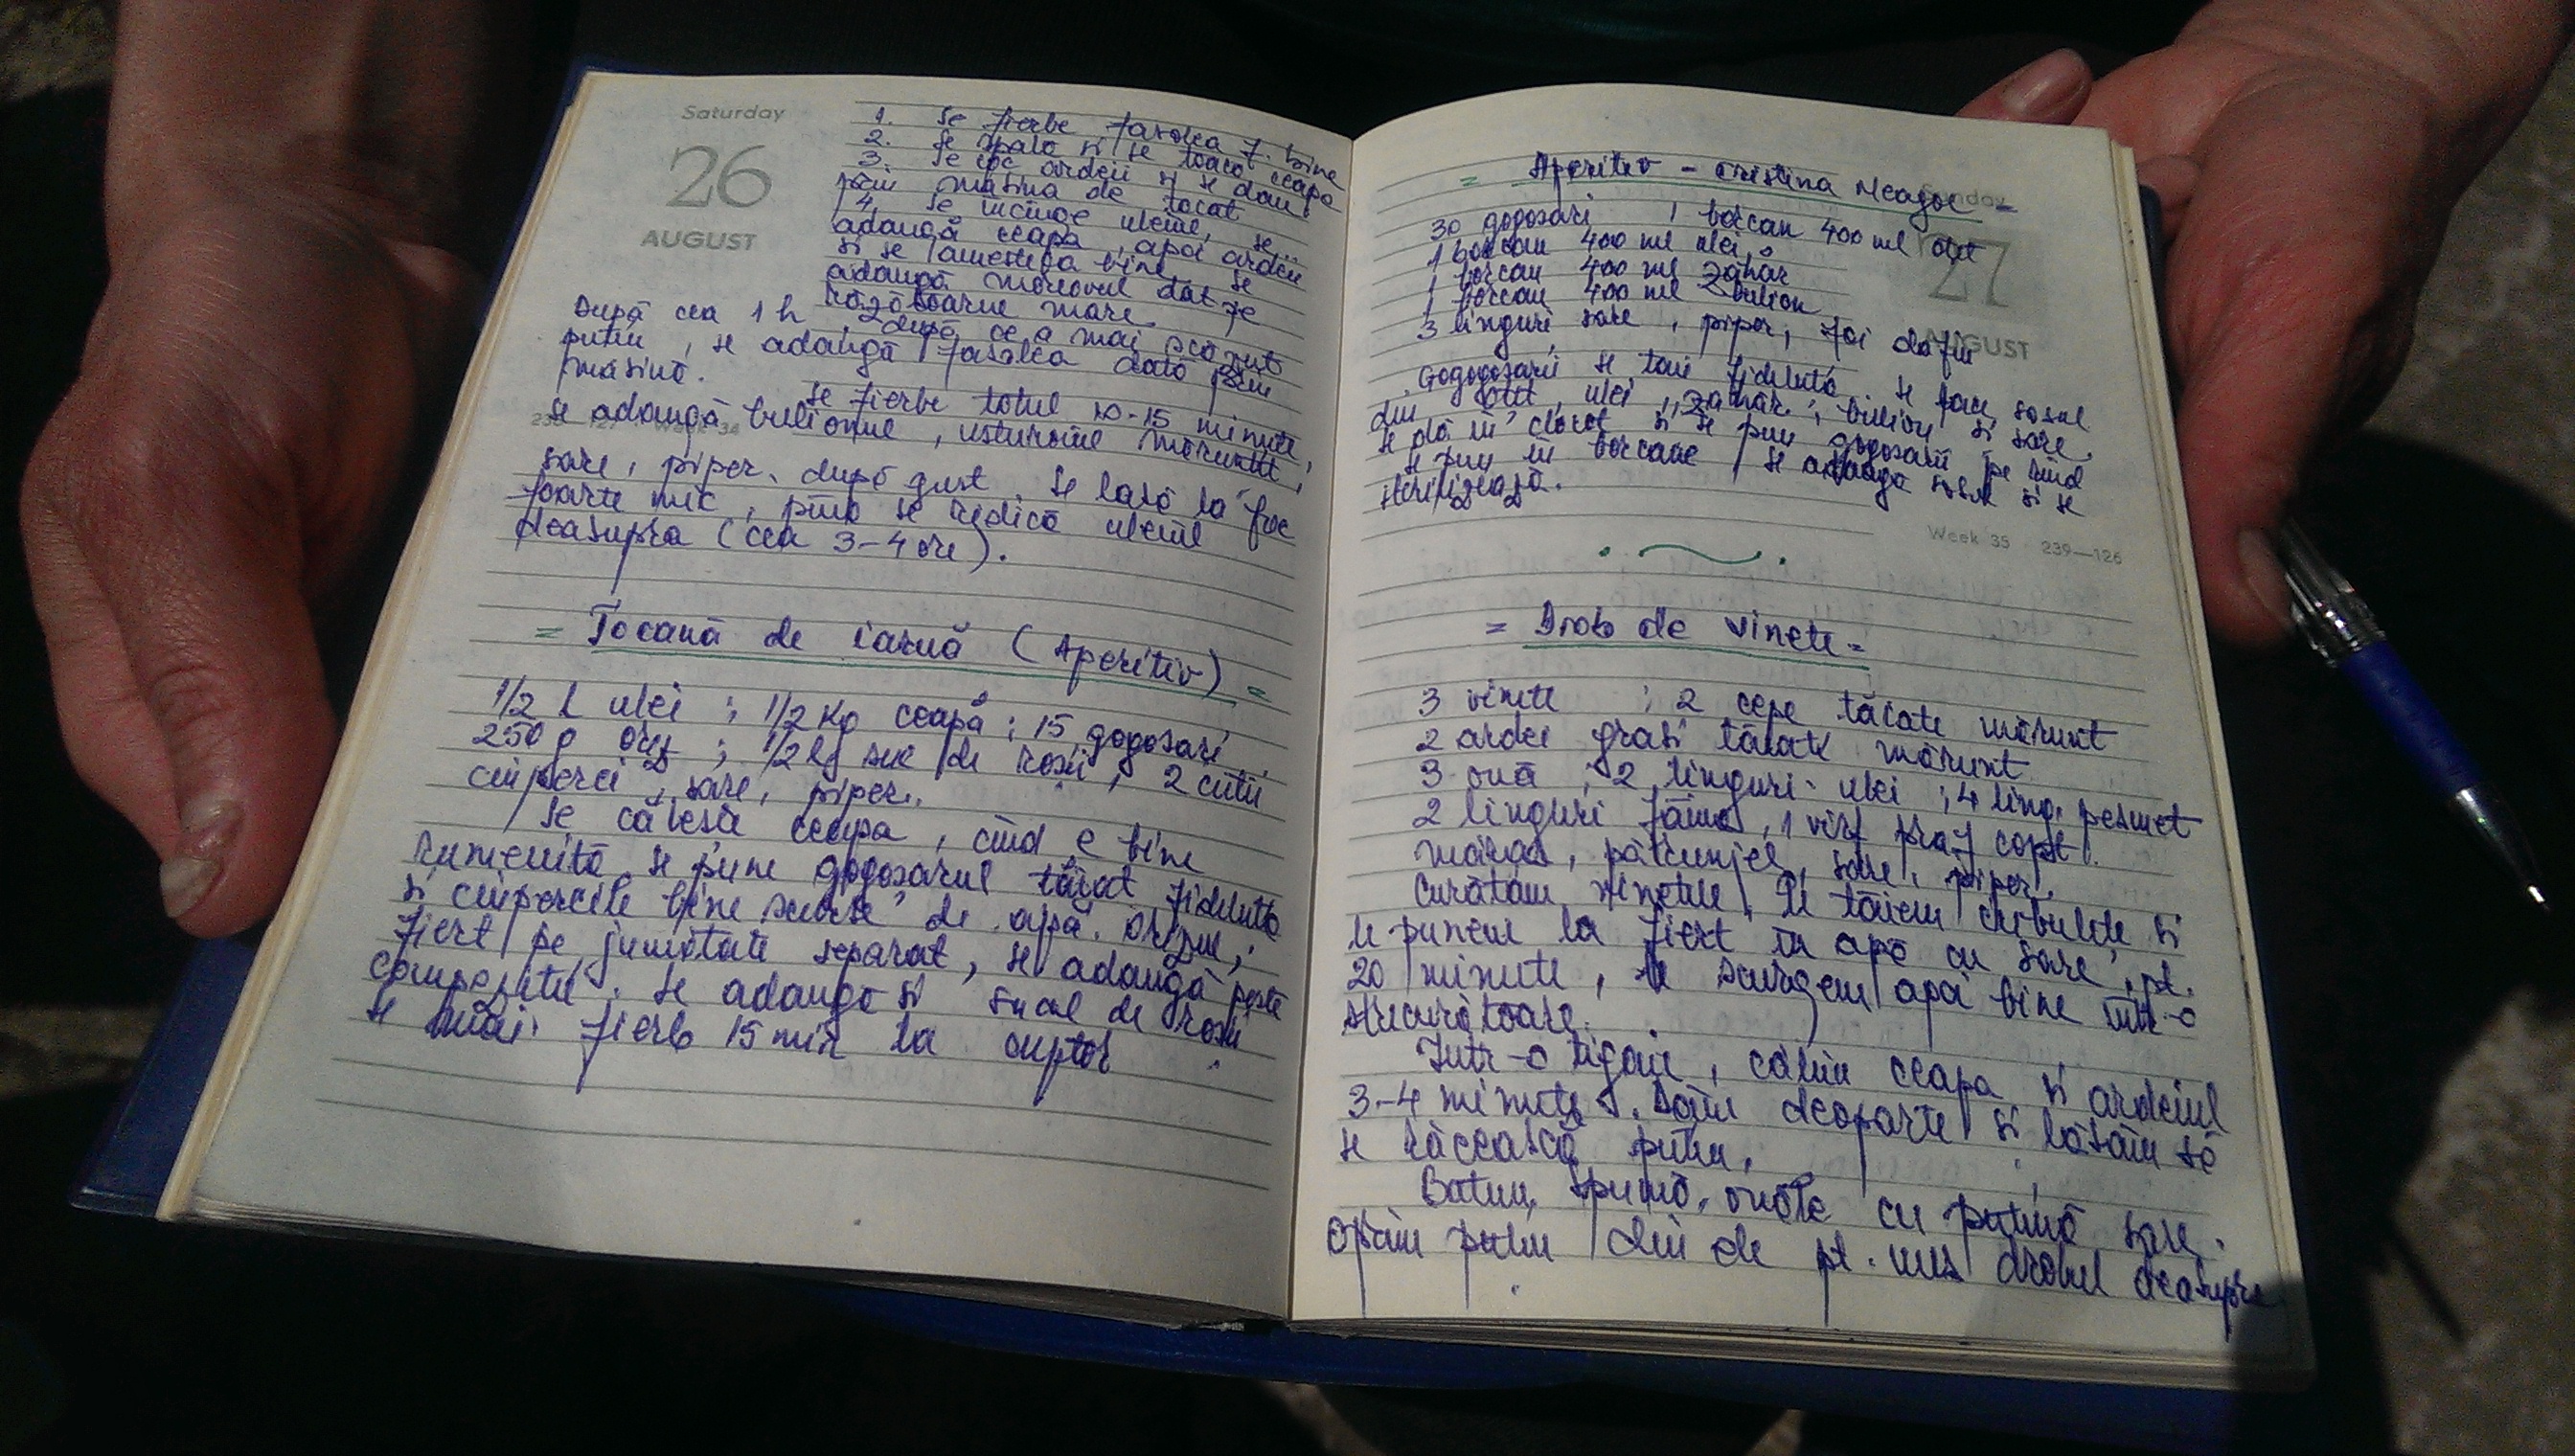 Saturday
26
AUGUST
1. Se fierbe fasolea f. bine
2. Se spală și se toacă ceapa
3. Se coc ardeii și se dau
prin mașina de tocat
4. Se încinge uleiul, se
adaugă ceapa, apoi ardeii
și se amestecă bine, se
adaugă morcovul dat pe
răzătoarea mare
După cca 1 h, după ce a mai scăzut
puțin, se adaugă fasolea dată prin
mașină.
Se fierbe totul 10-15 minute,
se adaugă bulionul, usturoiul mărunțit,
sare, piper, după gust. Se lasă la foc
foarte mic, pînă se ridică uleiul
deasupra (cca 3-4 ore).
= Tocană de iarnă (Aperitiv) =
1/2 L ulei ; 1/2 Kg ceapă ; 15 gogoșari
250 g orez ; 1/2 kg suc de roșii, 2 cutii
ciuperci, sare, piper.
Se călește ceapa, cînd e bine
rumenită se pune gogoșarul tăiat fideluță
și ciupercile bine scurse de apă. Orezul,
fiert pe jumătate separat, se adaugă peste
compoziție. Se adaugă și sucul de roșii
se mai fierb 15 min la cuptor.
= Aperitiv - Cristina Neagoe =
Sunday
27
AUGUST
30 gogoșari, 1 borcan 400 ml oțet
1 borcan 400 ml ulei,
1 borcan 400 ml zahăr
1 borcan 400 ml bulion
3 linguri sare, piper, foi dafin
Gogoșarii se taie fideluță, se face sosul
din oțet, ulei, zahăr, bulion și sare,
se dă în clocot și se pun gogoșarii pe rînd
se pun în borcane, se adaugă sosul și se
sterilizează.
Week 35 239—126
= Drob de vinete =
3 vinete ; 2 cepe tăiate mărunt
2 ardei grași tăiați mărunt
3 ouă ; 2 linguri ulei ; 4 ling. pesmet
2 linguri făină, 1 vîrf praf copt
mărar, pătrunjel, sare, piper.
Curățăm vinetele, le tăiem cubulețe și
le punem la fiert în apă cu sare, pt.
20 minute, le scurgem apa bine într-o
strecurătoare.
Într-o tigaie, călim ceapa și ardeiul
3-4 minute. Dăm deoparte și lăsăm să
se răcească puțin.
Batem spumă, ouăle cu puțină sare.
Oprim puțin din ele pt. uns drobul deasupra